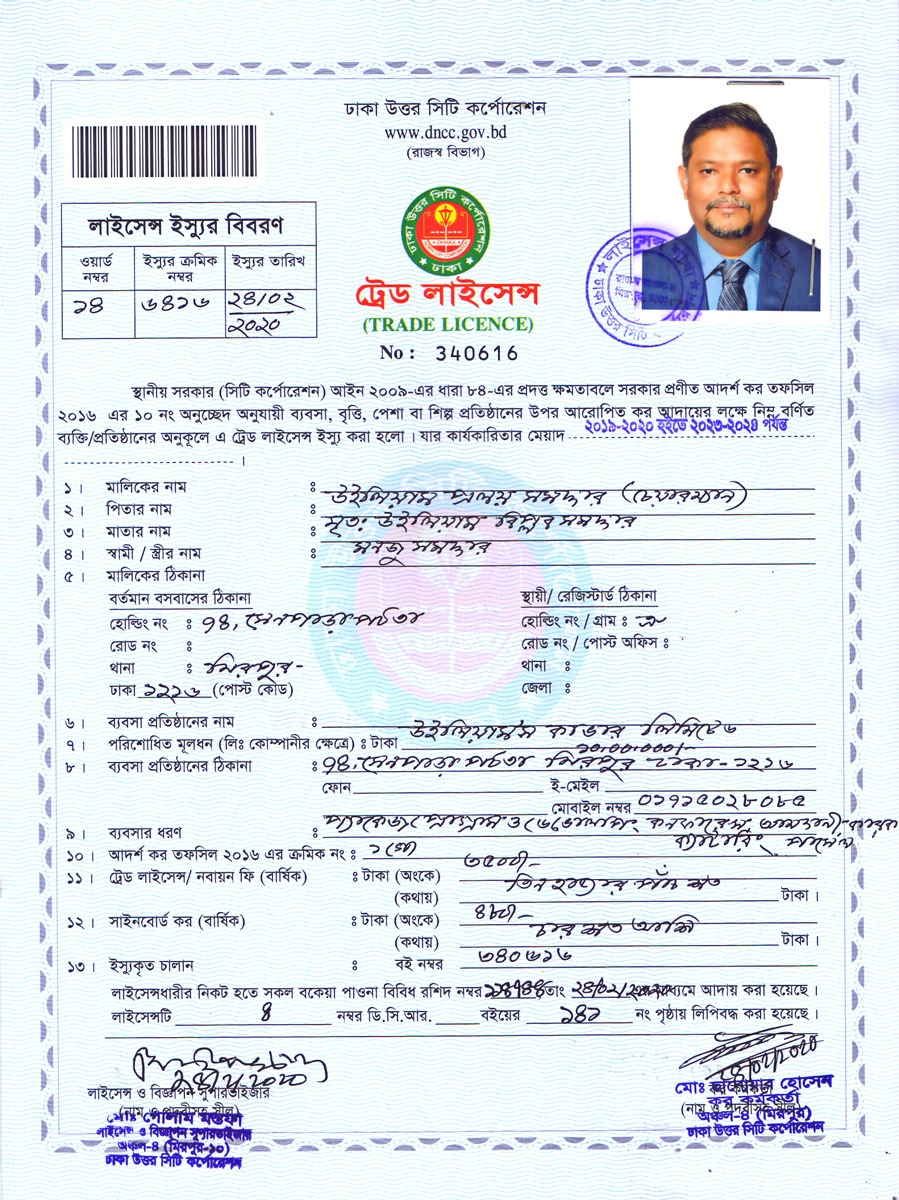 ঢাকা উত্তর সিটি কর্পোরেশন
www.dncc.gov.bd
(রাজস্ব বিভাগ)
লাইসেন্স ইস্যুর বিবরণ
ওয়ার্ড নম্বর
ইস্যুর ক্রমিক নম্বর
ইস্যুর তারিখ
১৪
৬৪১৬
২৪/০২/২০২০
ঢাকা উত্তর সিটি কর্পোরেশন
DHAKA
ঢাকা
ট্রেড লাইসেন্স
(TRADE LICENCE)
No : 340616
লাইসেন্স শাখা
ঢাকা উত্তর সিটি
স্থানীয় সরকার (সিটি কর্পোরেশন) আইন ২০০৯-এর ধারা ৮৪-এর প্রদত্ত ক্ষমতাবলে সরকার প্রণীত আদর্শ কর তফসিল
২০১৬ এর ১০ নং অনুচ্ছেদ অনুযায়ী ব্যবসা, বৃত্তি, পেশা বা শিল্প প্রতিষ্ঠানের উপর আরোপিত কর আদায়ের লক্ষে নিম্ন বর্ণিত
ব্যক্তি/প্রতিষ্ঠানের অনুকূলে এ ট্রেড লাইসেন্স ইস্যু করা হলো । যার কার্যকারিতার মেয়াদ ২০১৯-২০২০ হইতে ২০২৩-২০২৪ পর্যন্ত
।
১। মালিকের নাম : উইলিয়াম প্রলয় সমদ্দার (চেয়ারম্যান)
২। পিতার নাম : মৃত: উইলিয়াম বিপ্লব সমদ্দার
৩। মাতার নাম : মনজু সমদ্দার
৪। স্বামী / স্ত্রীর নাম :
৫। মালিকের ঠিকানা
বর্তমান বসবাসের ঠিকানা
হোল্ডিং নং : ৭৪, সেনপাড়া পর্বতা
রোড নং :
থানা : মিরপুর-
ঢাকা ১২১৬ (পোস্ট কোড)
স্থায়ী/ রেজিস্টার্ড ঠিকানা
হোল্ডিং নং / গ্রাম : ঐ
রোড নং / পোস্ট অফিস :
থানা :
জেলা :
৬। ব্যবসা প্রতিষ্ঠানের নাম : উইলিয়ামস কাভার লিমিটেড
৭। পরিশোধিত মূলধন (লিঃ কোম্পানীর ক্ষেত্রে) : টাকা ১০,০০,০০০/-
৮। ব্যবসা প্রতিষ্ঠানের ঠিকানা : ৭৪, সেনপাড়া পর্বতা মিরপুর ঢাকা-১২১৬
ফোন ই-মেইল
মোবাইল নম্বর ০১৭১৫০২৮০৮৫
৯। ব্যবসার ধরণ :
১০। আদর্শ কর তফসিল ২০১৬ এর ক্রমিক নং :
১১। ট্রেড লাইসেন্স/ নবায়ন ফি (বার্ষিক) : টাকা (অংকে) ৩৫০০/-
(কথায়) তিন হাজার পাঁচ শত টাকা ।
১২। সাইনবোর্ড কর (বার্ষিক) : টাকা (অংকে) ৪৮০/-
(কথায়) চার শত আশি টাকা ।
১৩। ইস্যুকৃত চালান : বই নম্বর ৩৪০৬১৬
লাইসেন্সধারীর নিকট হতে সকল বকেয়া পাওনা বিবিধ রশিদ নম্বর তাং ২৪/০২/২০২০ মাধ্যমে আদায় করা হয়েছে ।
লাইসেন্সটি ৪ নম্বর ডি.সি.আর. বইয়ের ১৪১ নং পৃষ্ঠায় লিপিবদ্ধ করা হয়েছে ।
লাইসেন্স ও বিজ্ঞাপন সুপারভাইজার
(নাম ও পদবীসহ সীল)
মোঃ গোলাম মস্তফা
লাইসেন্স ও বিজ্ঞাপন সুপারভাইজার
অঞ্চল-৪ (মিরপুর-১০)
ঢাকা উত্তর সিটি কর্পোরেশন
কর কর্মকর্তা
(নাম ও পদবীসহ সীল)
মোঃ হোসেন
কর কর্মকর্তা
অঞ্চল-৪ (মিরপুর)
ঢাকা উত্তর সিটি কর্পোরেশন